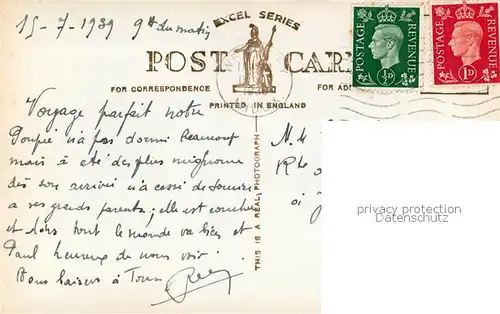 15-7-1939 9h du matin
EXCEL SERIES
POST CAR
FOR CORRESPONDENCE
FOR AD
PRINTED IN ENGLAND
POSTAGE REVENUE
½D
POSTAGE REVENUE
1D
THIS IS A REAL PHOTOGRAPH
Voyage parfait notre
Poupée n'a pas dormi Beaucoup
mais a été des plus mignonne
dès son arrivée n'a cessé de
a ses grands parents; elle est couchée
et dors tout le monde va bien et
Paul heureux de nous voir.
Bons baisers à Tous
M. M
R
privacy protection
Datenschutz